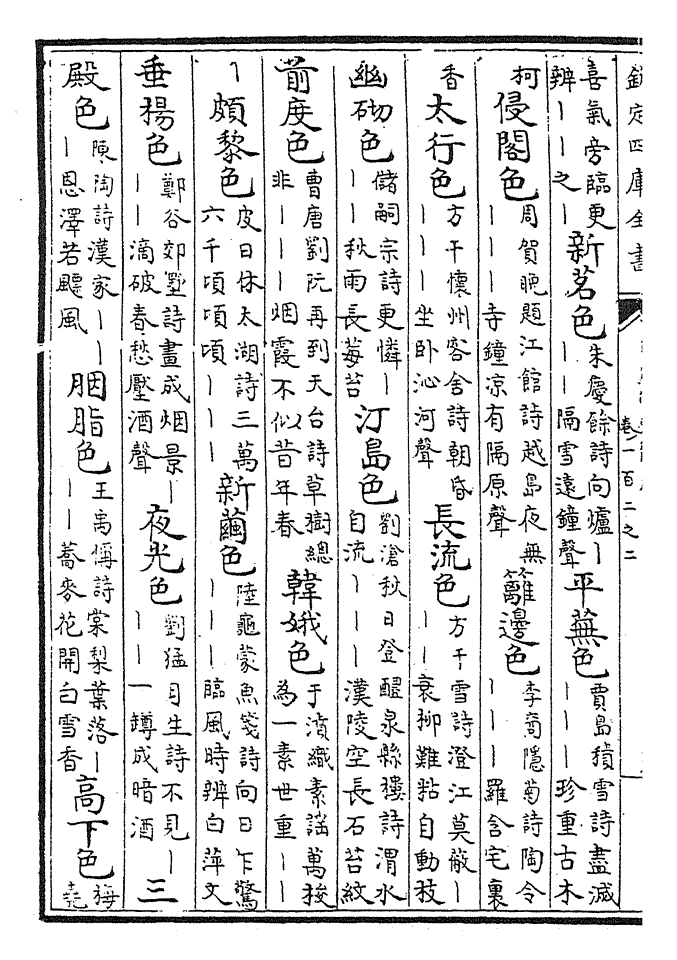 欽定四庫全書
卷一百二之二
喜氣旁臨更
辨丨丨之丨
新茗色
朱慶餘詩向爐丨
丨丨隔雪遠鐘聲
平蕪色
賈島積雪詩盡滅
丨丨丨珍重古木
柯
侵閣色
周賀晩題江館詩越島夜無
丨丨丨寺鐘凉有隔原聲
籬邊色
李商隱菊詩陶令
丨丨丨羅含宅裏
香
太行色
方干懷州客舍詩朝昏
丨丨丨坐卧沁河聲
長流色
方干雪詩澄江莫蔽丨
丨丨衰柳難粘自動枝
幽砌色
儲嗣宗詩更憐丨
丨丨秋雨長莓苔
汀島色
劉滄秋日登醴泉縣樓詩渭水
自流丨丨丨漢陵空長石苔紋
前度色
曹唐劉阮再到天台詩草樹總
非丨丨丨烟霞不似昔年春
韓娥色
于濆織素謡萬梭
為一素世重丨丨
丨
頗黎色
皮日休太湖詩三萬
六千頃頃頃丨丨丨
新繭色
陸龜蒙魚箋詩向日乍驚
丨丨丨臨風時辨白萍文
垂揚色
鄭谷郊墅詩畫成烟景丨
丨丨滴破春愁壓酒聲
夜光色
劉猛月生詩不見丨
丨丨一鐏成暗酒
三
殿色
陳陶詩漢家丨丨
丨恩澤若飃風
胭脂色
王禹偁詩棠梨葉落丨
丨丨蕎麥花開白雪香
高下色
梅
堯